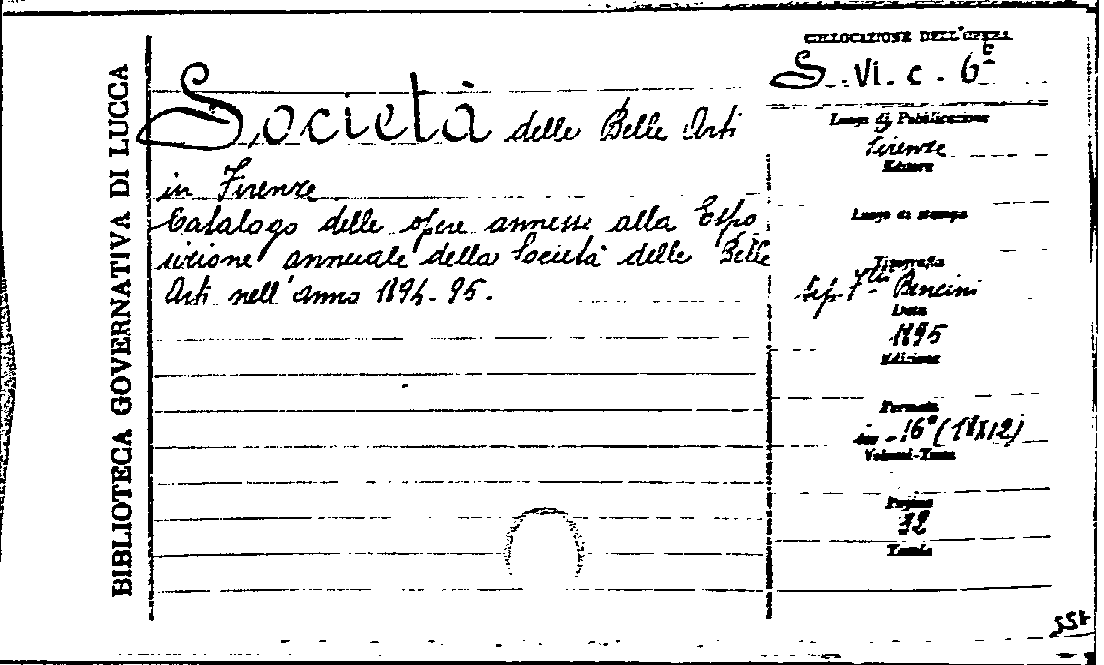 BIBLIOTECA GOVERNATIVA DI LUCCA
Società delle Belle Arti
in Firenze
Catalogo delle opere annesse alla Espo
sizione annuale della Società delle Belle
Arti nell'anno 1894-95.
COLLOCAZIONE DELL'OPERA
S. VI. c. 6
Luogo di Pubblicazione
Firenze
Editore
Luogo di stampa
Tipografia
Tip. F.lli Bencini
Data
1895
Edizione
Formato
in-16° (18X12)
Volumi-Tomi
Pagine
32
Tavole